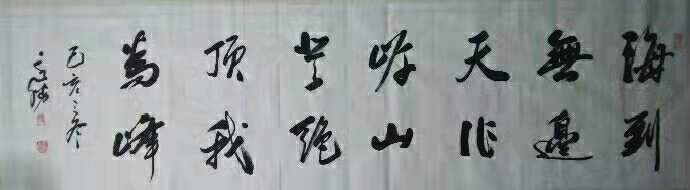 海到
無邊
天作
岸山
登絕
頂我
為峰
己亥之冬